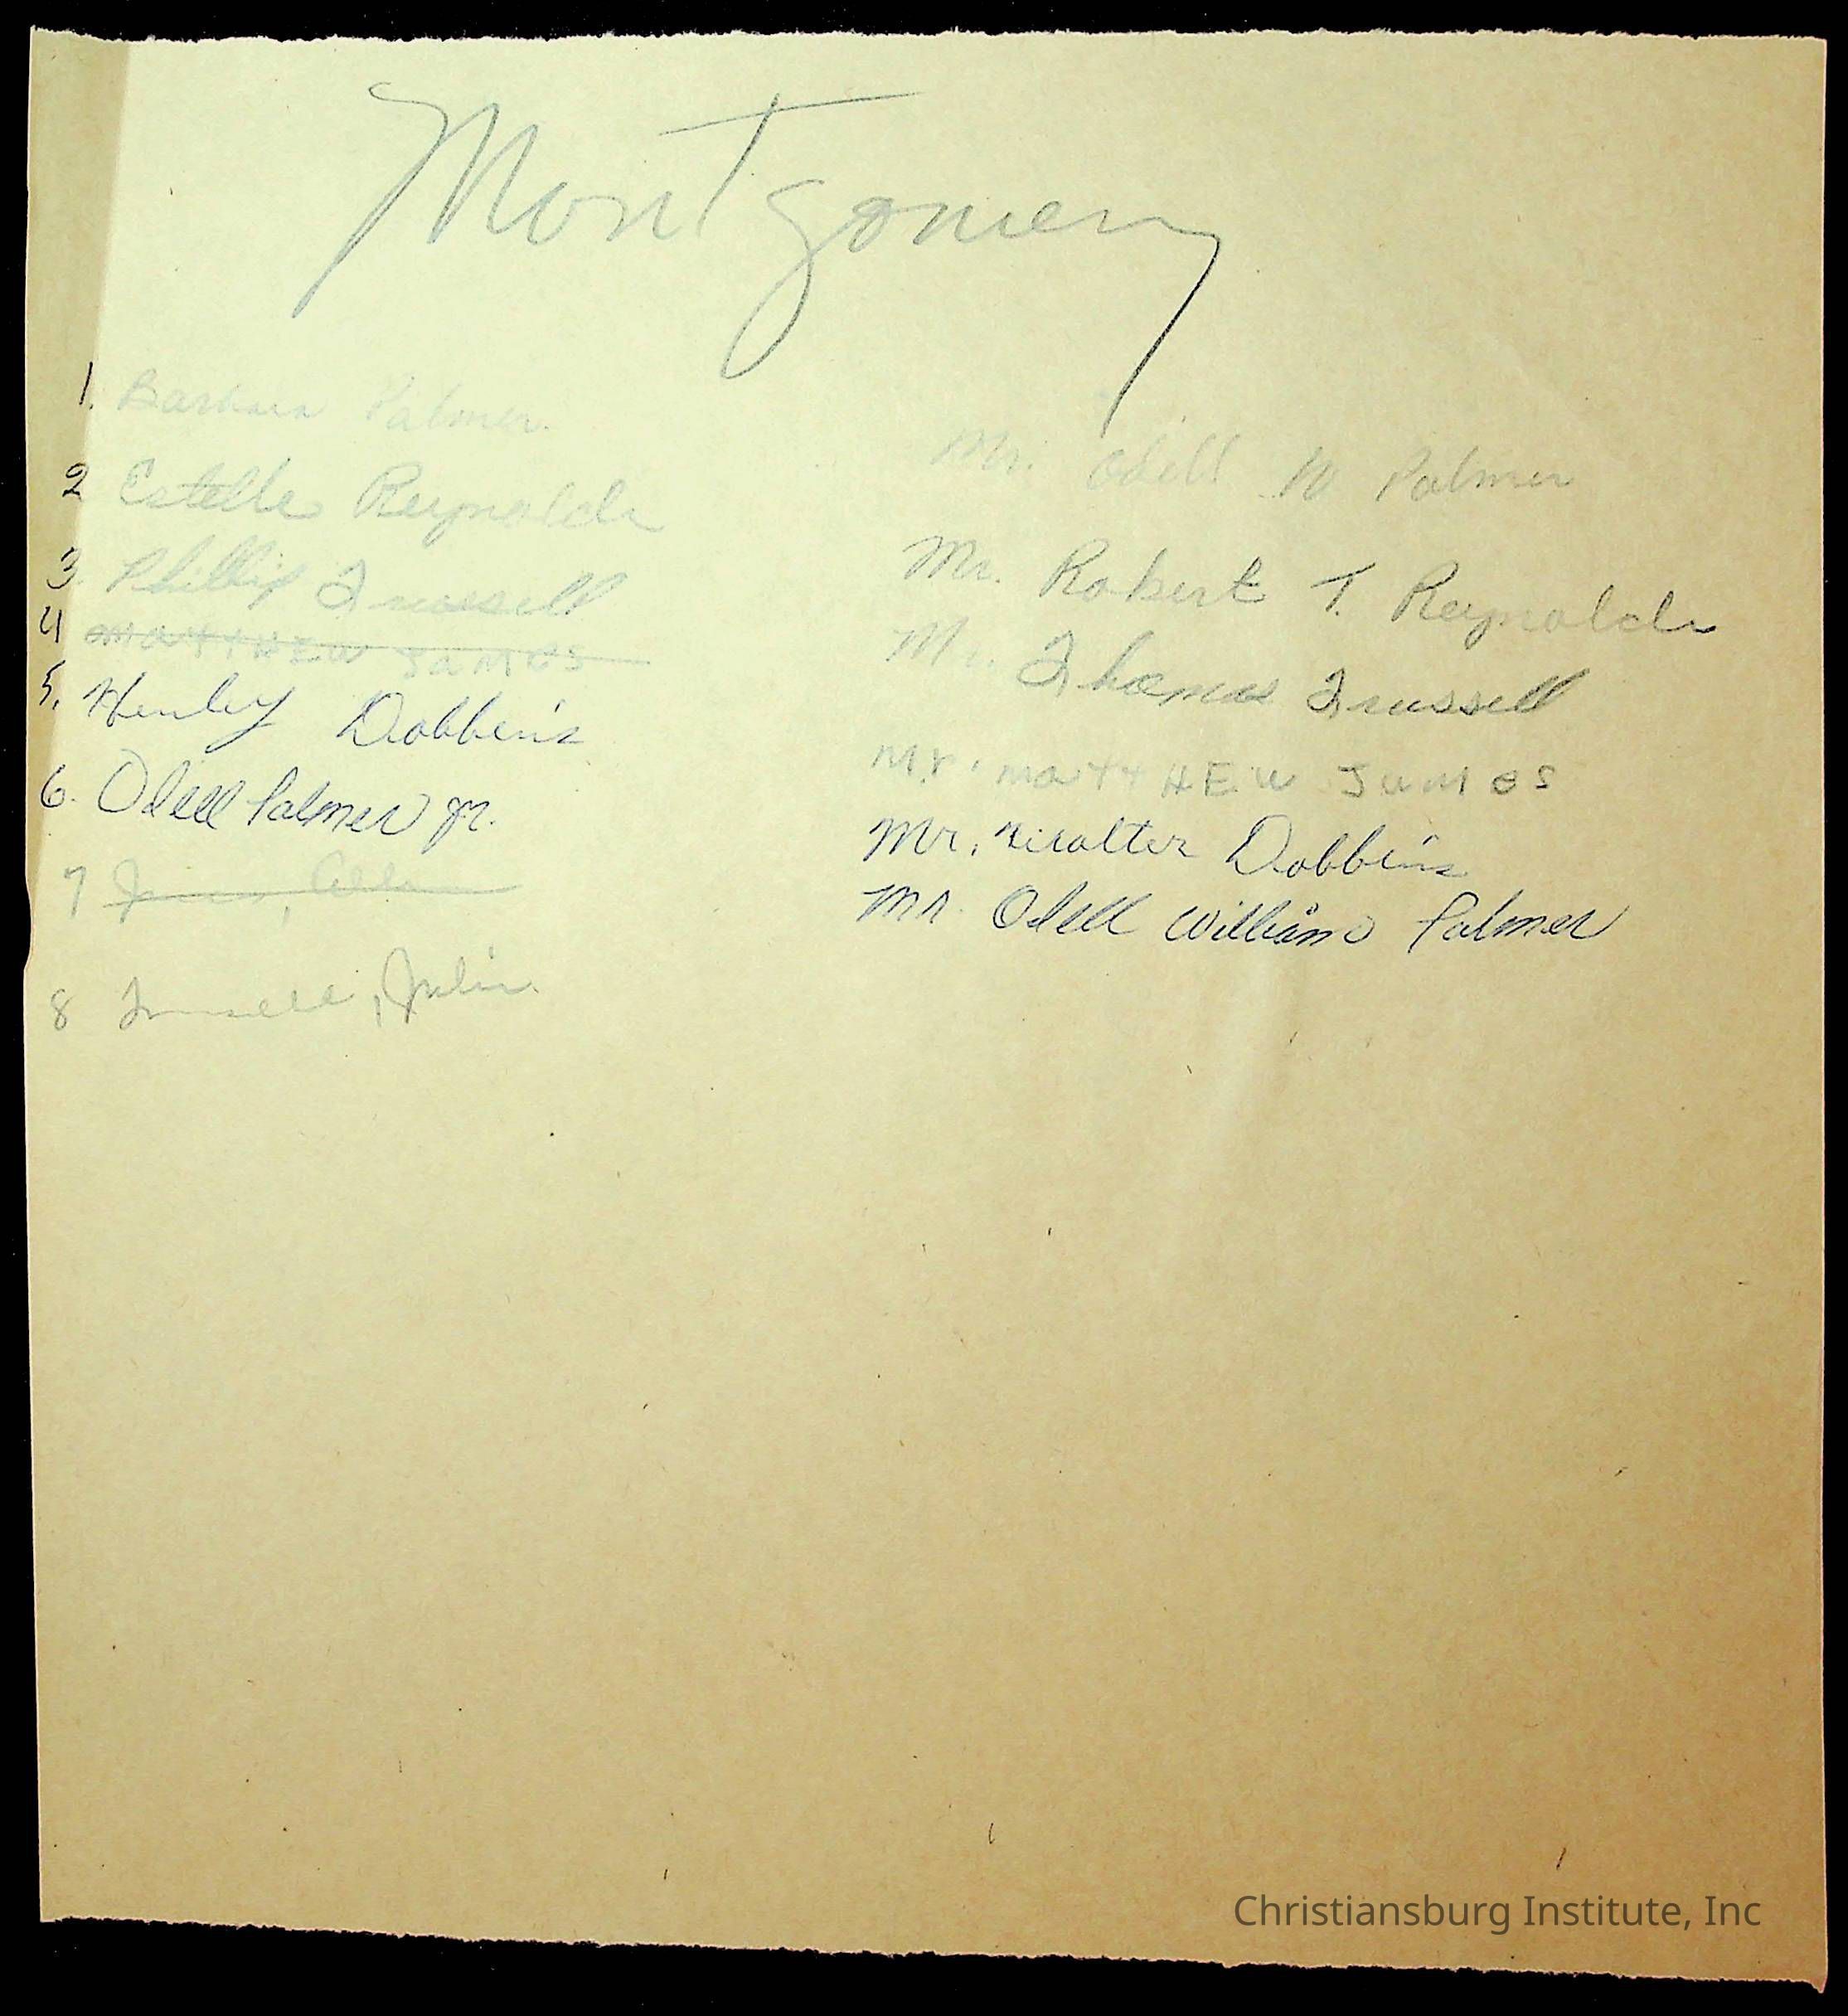 Montgomery
1. Barbara Palmer. Mr. Odell W Palmer
2 Estelle Reynolds Mr. Robert T. Reynolds
3. Phillip Trussell Mr. Thomas Trussell
4 MattHEW JamES Mr. mattHEW JamES
5. Henley Dobbins Mr. Walter Dobbins
6. Odell Palmer Jr. Mr. Odell William Palmer
7
8 Trussell, Julia
Christiansburg Institute, Inc